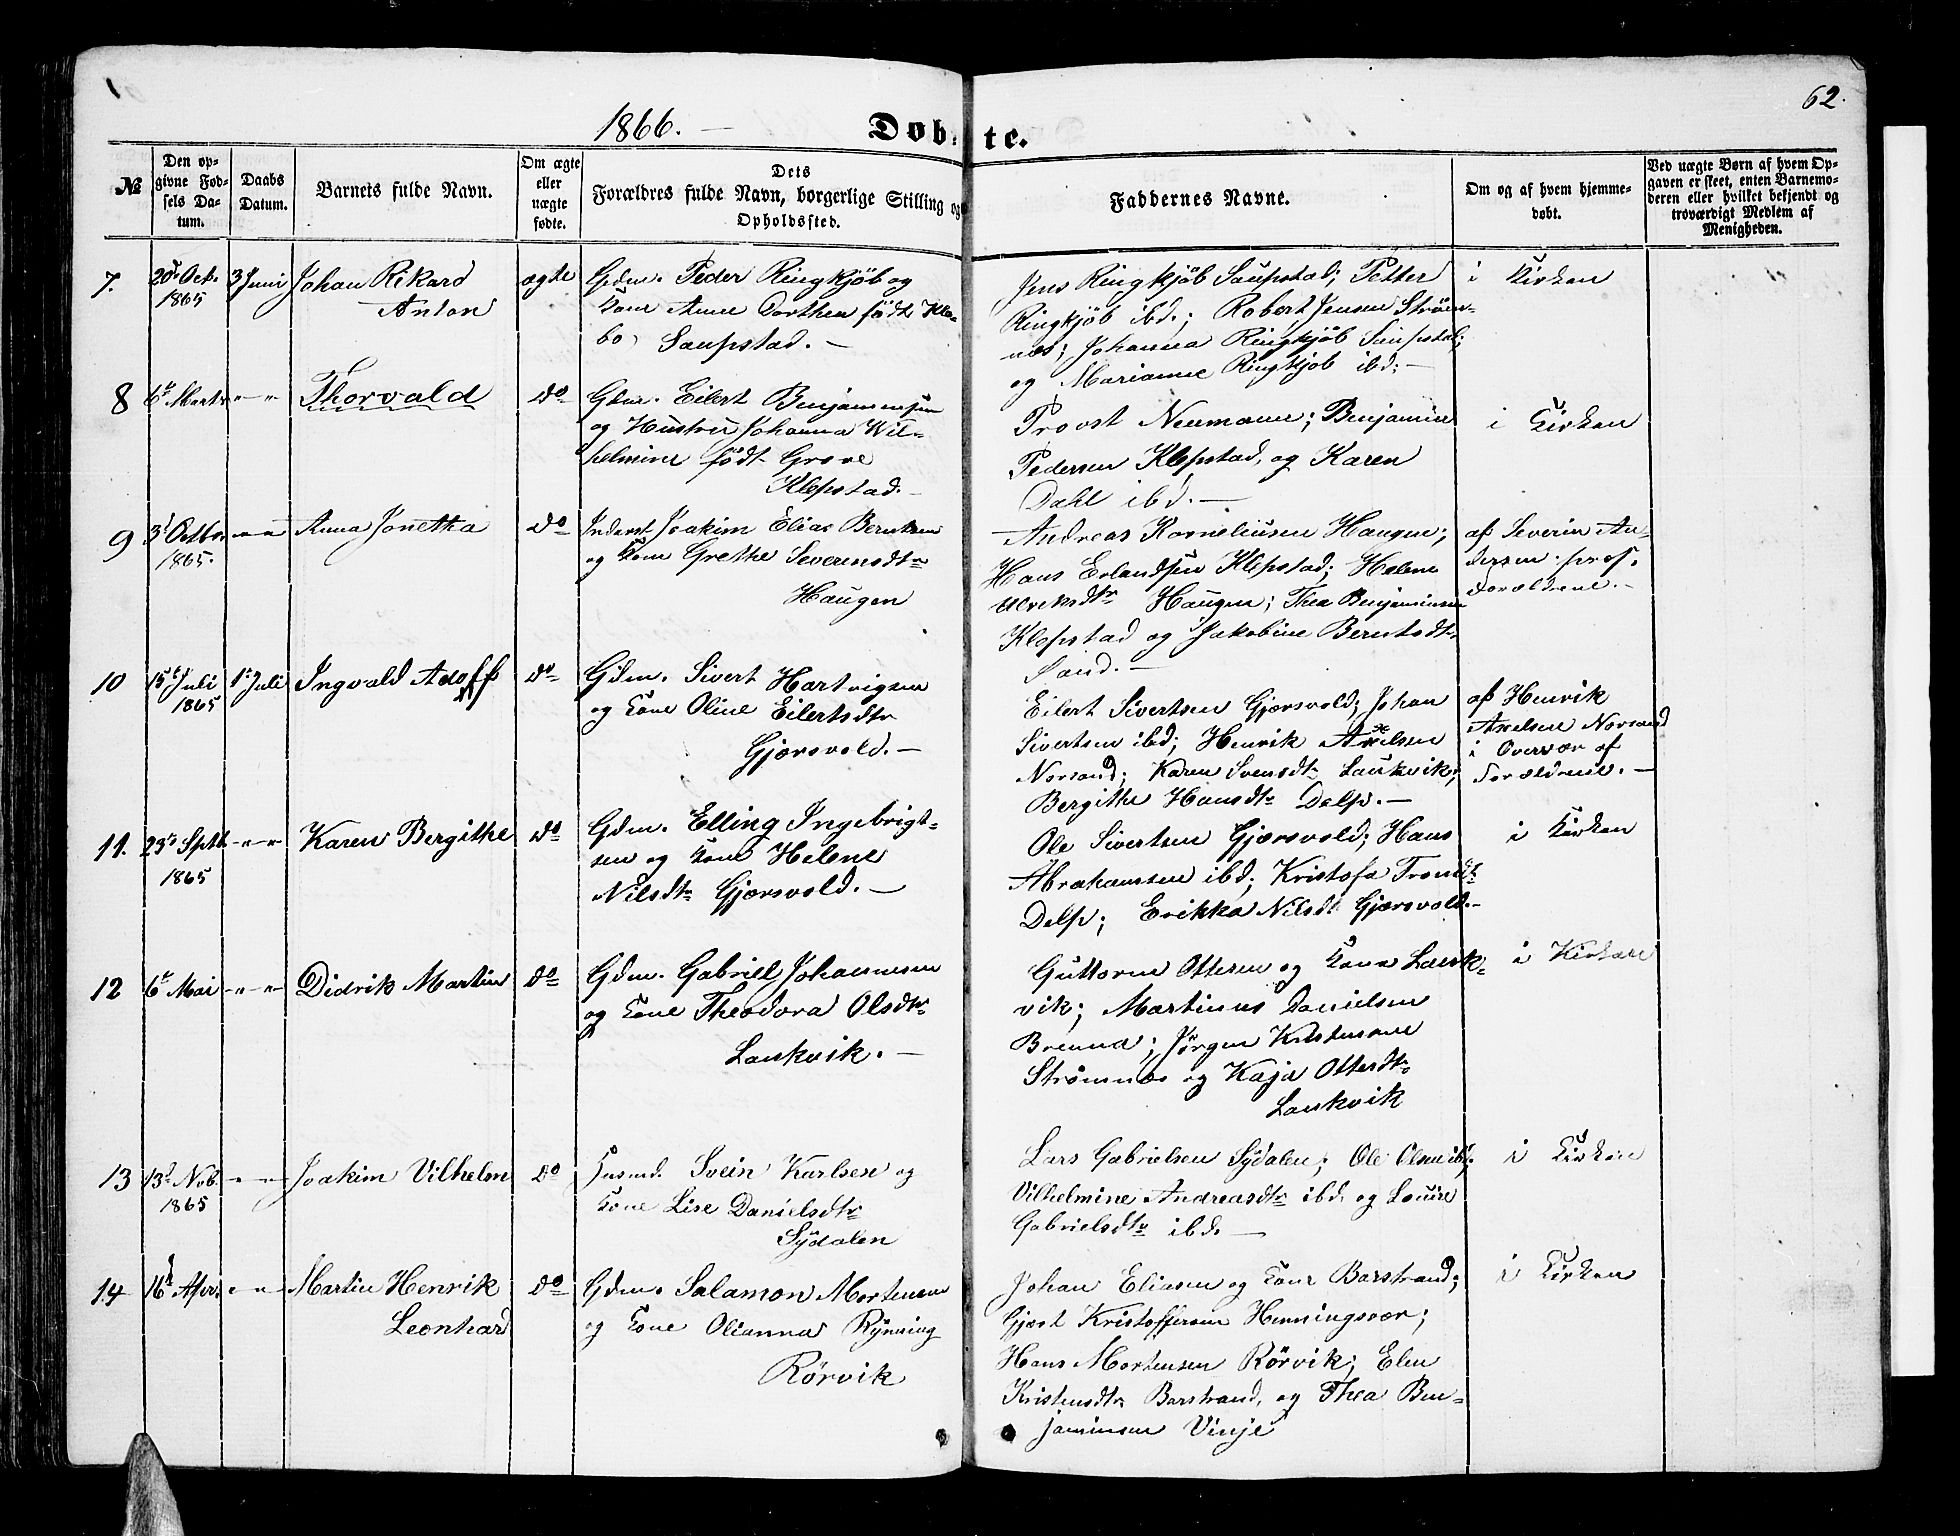 62.
1866. — Døbte.
№
Den opgivne Fødsels Datum.
Daabs Datum.
Barnets fulde Navn.
Om ægte eller uægte fødte.
Dets Forældres fulde Navn, borgerlige Stilling og Opholdssted.
Faddernes Navne.
Om og af hvem hjemmedøbt.
Ved uægte Børn af hvem Opgaven er skeet, enten Barnemoderen eller hvilket bekjendt og troværdigt Medlem af Menigheden.
7.
20de Octb. 1865
3 Juni
Johan Rikard
Anton
ægte
Gdm. Peder Ringkjöb og
Kone Anne Dorthea födt Kle-
bo, Saupstad. —
Jens Ringkjöb Saupstad; Petter
Ringkjöb ibd.; Robert Jensen Ström-
næs; Johanna Ringkjöb Saupstad;
og Marianne Ringkjöb ibd. —
i Kirken
8
6te Marts
— " — "
Thorvald
do
Gdm. Eilert Benjaminsen
og Hustru Johanna Wil-
helmine födt Grove
Klepstad. —
Provst Neumann; Benjamin
Pedersen Klepstad, og Karen
Dahl ibd. —
i Kirken
9
3d Octbr. 1865.
— " — "
Anna Jonetha
do
Inderst Joakim Elias Berntsen
og Kone Grethe Severensdtr
Haugen
Andreas Korneliusen Haugen;
Hans Erlandsen Klepstad; Helene
Ulriksdtr Haugen; Thea Benjaminsen
Klepstad og Jakobine Berntsdtr
Sand. —
af Severin An-
dersen
Forældrene. —
10
15de Juli 1865
1ste Juli
Ingvald Adolff
do
Gdm. Sivert Hartvigsen
og Kone Oline Eilertsdtr
Gjærsvold. —
Eilert Sivertsen Gjærsvold; Johan
Sivertsen ibd; Henrik Axelsen
Norsand; Karen Svensdtr Laukvik;
Bergithe Hansdtr Delp. —
af Henrik
Axelsen Norsand
i Overvær af
Forældrene. —
11.
23de Sptb. 1865
— " — "
Karen Bergithe
do
Gdm. Elling Ingebrigt-
sen og Kone Helene
Nilsdtr Gjærsvold. —
Ole Sivertsen Gjærsvold; Hans
Abrahamsen ibd; Kristofa Tronsdtr
Delp; Erikka Nilsdtr Gjærsvold. —
i Kirken
12
6te Mai
— " — "
Didrik Martin
do
Gdm. Gabriel Johannesen
og Kone Theodora Olsdtr
Laukvik. —
Guttorm Ottesen og Kone Lauk-
vik; Martinus Danielsen
Brenna; Jörgen Kristensen
Strømnæs og Kaja Ottesdtr
Laukvik
i Kirken
13
13de Nob. 1865
— " — "
Joakim Vilhelm
do
Husmd. Svein Karlsen og
Kone Lise Danielsdtr
Sydalen
Lars Gabrielsen Sydalen; Ole Olsen ibd;
Vilhelmine Andreasdtr ibd. og Louise
Gabrielsdtr ibd. —
i Kirken
14
16de April
" — "
Martin Henrik
Leonhard
do
Gdm. Salamon Mortensen
og Kone Olianna Rynning
Rørvik
Johan Eliasen og Kone Barstrand;
Gjert Kristoffersen Henningsvær;
Hans Mortensen Rörvik; Elen
Kristensdtr Barstrand, og Thea Ben-
jaminsen Vinje
i Kirken